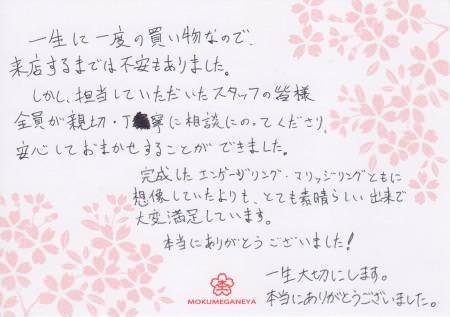 一生に一度の買い物なので、
来店するまでは不安もありました。
しかし、担当していただいたスタッフの皆様
全員が親切・丁寧に相談にのってくださり、
安心しておまかせすることができました。
完成したエンゲージリング・マリッジリングともに
想像していたよりも、とても素晴らしい出来で
大変満足しています。
本当にありがとうございました!
一生大切にします。
本当にありがとうございました。
MOKUMEGANEYA